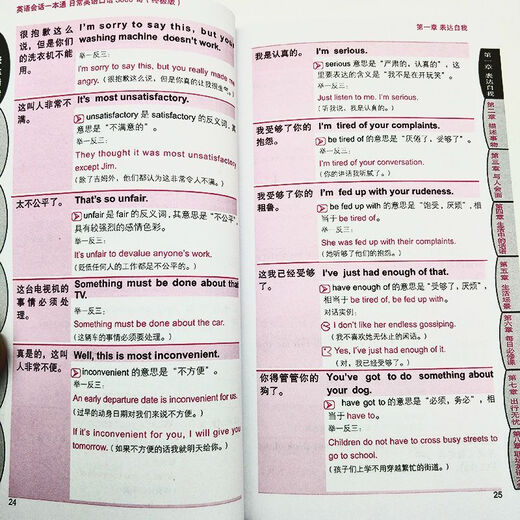 英语会话一本通 日常英语口语
很抱歉这么
说,但是你们
的洗衣机不能
用。
I'm sorry to say this, but your
washing machine doesn't work.
举一反三:
I'm sorry to say this, but you really made me
angry.(很抱歉这么说,但是你真的让我很生气。)
这叫人非常不
满。
It's most unsatisfactory.
unsatisfactory 是 satisfactory 的反义词,其
意思是"不满意的"。
举一反三:
They thought it was most unsatisfactory
except Jim.
(除了吉姆外,他们都认为这非常令人不满。)
太不公平了。
That's so unfair.
unfair 是 fair 的反义词,其意思是"不公平",
具有较强烈的感情色彩。
举一反三:
It's unfair to devalue anyone's work.
(贬低任何人的工作都是不公平的。)
这台电视机的
事情必须处
理。
Something must be done about that
TV.
举一反三:
Something must be done about the car.
(这辆车的事情必须要处理。)
真是的,这叫
人非常不便。
Well, this is most inconvenient.
inconvenient 的意思是"不方便"。
举一反三:
An early departure date is inconvenient for us.
(过早的动身日期对我们来说不方便。)
If it's inconvenient for you, I will give you
tomorrow.(如果不方便的话我就明天给你。)
24
第一章 表达自我
我是认真的。
I'm serious.
serious 意思是"严肃的,认真的",这
里要表达的含义是"我不是在开玩笑"。
举一反三:
Just listen to me. I'm serious.
(听我说,我是认真的。)
我受够了你的
抱怨。
I'm tired of your complaints.
be tired of 的意思是"厌倦了,受够了"。
举一反三:
I'm tired of your conversation.
(你的讲话我听腻了。)
我受够了你的
粗鲁。
I'm fed up with your rudeness.
be fed up with 的意思是"饱受,厌烦",相
当于 be tired of.
举一反三:
She was fed up with their complaints.
(她听够了他们的抱怨。)
这我已经受够
了。
I've just had enough of that.
have enough of 的意思是"受够了,厌烦",
相当于 be tired of, be fed up with.
对话实例:
I don't like her endless gossiping.
(我不喜欢她无休止的闲话。)
Yes, I've just had enough of it.
(对,我已经受够了。)
你得管管你的
狗了。
You've got to do something about
your dog.
have got to 的意思是"必须,务必",相
当于 have to.
举一反三:
Children do not have to cross busy streets
to go to school.
(孩子们上学不用穿越繁忙的街道。)
25
第一章 表达自我
第二章 描述事物
第三章 与人会面
第四章 生活中的沟通
第五章 生活场景
第六章 每日必修课
第七章 出行无忧